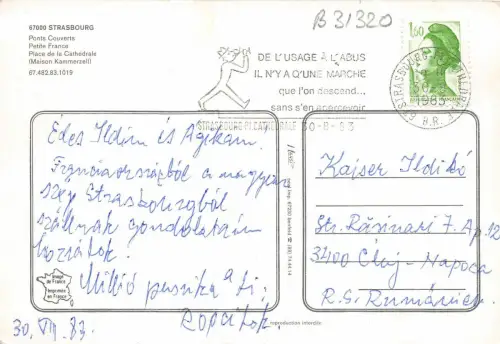 67000 STRASBOURG
Ponts Couverts
Petite France
Place de la Cathédrale
(Maison Kammerzell)
67.482.83.1019
B 31320
DE L'USAGE À L'ABUS
IL N'Y A QU'UNE MARCHE
que l'on descend...
sans s'en apercevoir
STRASBOURG PL. CATHEDRALE 30-8-83
1,60
1983
Édes Ildim és Ágikám.
Franciaországból a magyar
szép Strasbourgból
szállnak gondolataim
hozzátok.
Millió puszika
30. VIII. 83.
Image de France
Imprimée en France
reproduction interdite
Kaiser Ildikó
Str. Răsinari 7. Ap 12
3400 Cluj-Napoca
R.S. Rumänien